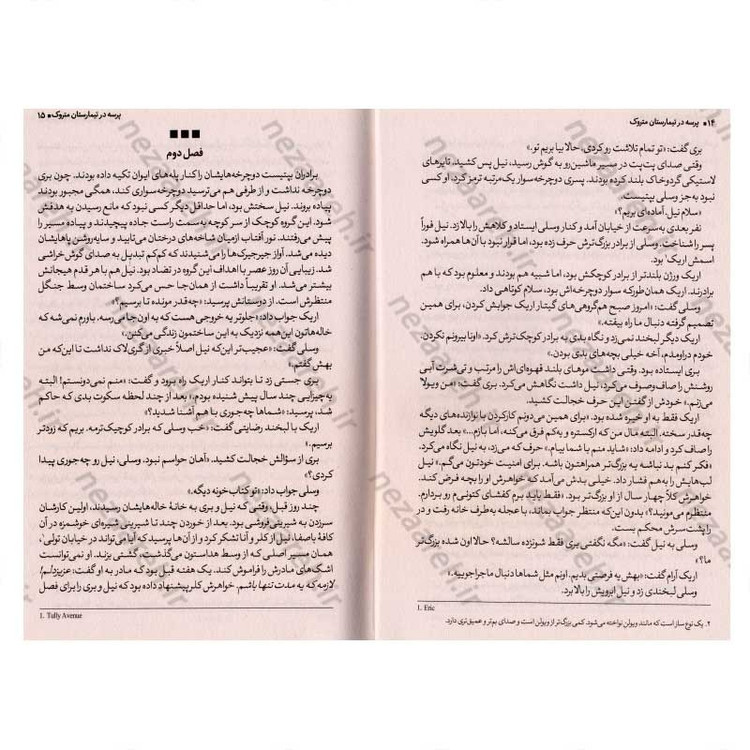 ۱۴ ■ پرسه در تیمارستان متروک
بری گفت: «تو تمام تلاشت رو کردی. حالا بیا بریم تو.»
وقتی صدای پت‌پت در مسیر ماشین‌رو به گوش رسید، نیل پس کشید. تایرهای
لاستیکی گردوخاک بلند کرده بودند. پسری دوچرخه‌سوار یک‌مرتبه ترمز کرد. او کسی
نبود به‌جز وسلی بپتیست.
«سلام نیل. آماده‌ای بریم؟»
نفر بعدی به‌سرعت از خیابان آمد و کنار وسلی ایستاد و کلاهش را بالا زد. نیل فوراً
پسر را شناخت. وسلی از برادر بزرگ‌ترش حرف زده بود، اما قرار نبود با آن‌ها همراه شود.
اسمش اریک۱ بود.
اریک ورژن بلندتر از برادر کوچکش بود، اما شبیه هم بودند و معلوم بود که با هم
برادرند. اریک همان‌طور که سوار دوچرخه‌اش بود، سلام کوتاهی داد.
وسلی گفت: «امروز صبح هم‌گروهی‌های گیتار اریک جوابش کردن، برای همین
تصمیم گرفته دنبال ما راه بیفته.»
اریک دیگر لبخند نمی‌زد و نگاه بدی به برادر کوچک‌ترش کرد. «اونا بیرونم نکردن.
خودم دراومدم، آخه خیلی بچه‌های بدی بودن.»
بری ایستاده بود. وقتی داشت موهای بلند قهوه‌ای‌اش را مرتب و تی‌شرت آبی
روشنش را صاف‌وصوف می‌کرد، نیل داشت نگاهش می‌کرد. بری گفت: «من ویولا۲
می‌زنم.» خودش از گفتن این حرف خجالت کشید.
اریک فقط به او خیره شده بود. «برای همین می‌دونم کارکردن با نوازنده‌های دیگه
چه‌قدر سخته. البته مال من که ارکستره و یه‌کم فرق می‌کنه، اما بازم...» بعد گلویش
را صاف کرد و ادامه داد: «شاید منم با شما بیام.» حرف که می‌زد، به نیل نگاه می‌کرد.
«فکر کنم بد نباشه یه بزرگ‌تر همراهتون باشه. برای امنیت خودتون می‌گم.» نیل
لب‌هایش را به‌هم فشار داد. خیلی بدش می‌آمد که خواهرش او را بچه فرض کند.
خواهرش کلاً چهار سال از او بزرگ‌تر بود. «فقط باید برم کفشای کتونی‌م رو بردارم.
منتظرم می‌مونید؟» بدون این‌که منتظر جواب بماند، با عجله به‌طرف خانه رفت و در
را پشت‌سرش محکم بست.
وسلی به نیل گفت: «مگه نگفتی بری فقط شونزده سالشه؟ حالا اون شده بزرگ‌تر
ما؟»
اریک آرام گفت: «بهش یه فرصتی بدیم. اونم مثل شماها دنبال ماجراجوییه.»
وسلی لبخندی زد و نیل ابرویش را بالا برد.
1. Eric
۲. یک نوع ساز است که مانند ویولن نواخته می‌شود. کمی بزرگ‌تر از ویولن است و صدای بم‌تر و عمیق‌تری دارد.
پرسه در تیمارستان متروک ■ ۱۵
فصل دوم
برادران بپتیست دوچرخه‌هایشان را کنار پله‌های ایوان تکیه داده بودند. چون بری
دوچرخه نداشت و از طرفی هم می‌ترسید دوچرخه‌سواری کند، همگی مجبور بودند
پیاده بروند. نیل سختش بود، اما حداقل دیگر کسی نبود که مانع رسیدن به هدفش
شود. این گروه کوچک از سر کوچه به‌سمت راست جاده پیچیدند و پیاده مسیر را
پیش می‌رفتند. نور آفتاب ازمیان شاخه‌های درختان می‌تابید و سایه‌روشن پاهایشان
دیده می‌شد. آواز جیرجیرک‌ها را می‌شنیدند که کم‌کم تبدیل به صدای گوش خراشی
شد. زیبایی آن روز عصر با اهداف این گروه در تضاد بود. نیل هم با هر قدم هیجانش
بیشتر می‌شد. او تقریباً داشت از همان جا حس می‌کرد ساختمان وسط جنگل
منتظرش است. از دوستانش پرسید: «چه‌قدر مونده تا برسیم؟»
اریک جواب داد: «جلوتر یه خروجی هست که به اون‌جا می‌رسه. باورم نمی‌شه که
خاله‌هاتون این‌همه نزدیک به این ساختمون زندگی می‌کنن.»
وسلی گفت: «عجیب‌تر این‌که نیل اصلاً خبری از گری‌لاک نداشت تا این‌که من
بهش گفتم.»
بری جستی زد تا بتواند کنار اریک راه برود و گفت: «منم نمی‌دونستم! البته
یه چیزایی چند سال پیش شنیده بودم.» بعد از چند لحظه سکوت بدی که حاکم
شد، پرسید: «شماها چه‌جوری با هم آشنا شدید؟»
اریک با لبخند رضایتی گفت: «خب وسلی که برادر کوچیک‌ترمه. بریم که زودتر
برسیم.»
بری از سؤالش خجالت کشید. «آهان حواسم نبود. وسلی، نیل رو چه‌جوری پیدا
کردی؟»
وسلی جواب داد: «تو کتاب‌خونه دیگه.»
چند روز قبل، وقتی که نیل و بری به خانهٔ خاله‌هایشان رسیدند، اولین کارشان
سرزدن به شیرینی‌فروشی بود. بعد از خوردن چند تا شیرینی شیره‌ای خوشمزه در آن
کافهٔ باصفا، نیل از کلر و آنا تشکر کرد و از آن‌ها پرسید که آیا می‌تواند در خیابان تولی۱،
همان مسیر اصلی که از وسط هداستون می‌گذشت، گشتی بزند. او نمی‌توانست
اشک‌های مادرش را فراموش کند. یک هفته قبل بود که مادر به او گفت: عزیزدلم!
لازمه که یه مدت تنها باشم. خواهرش کلر پیشنهاد داده بود که نیل و بری را برای فصل
1. Tully Avenue
nezaareh.ir